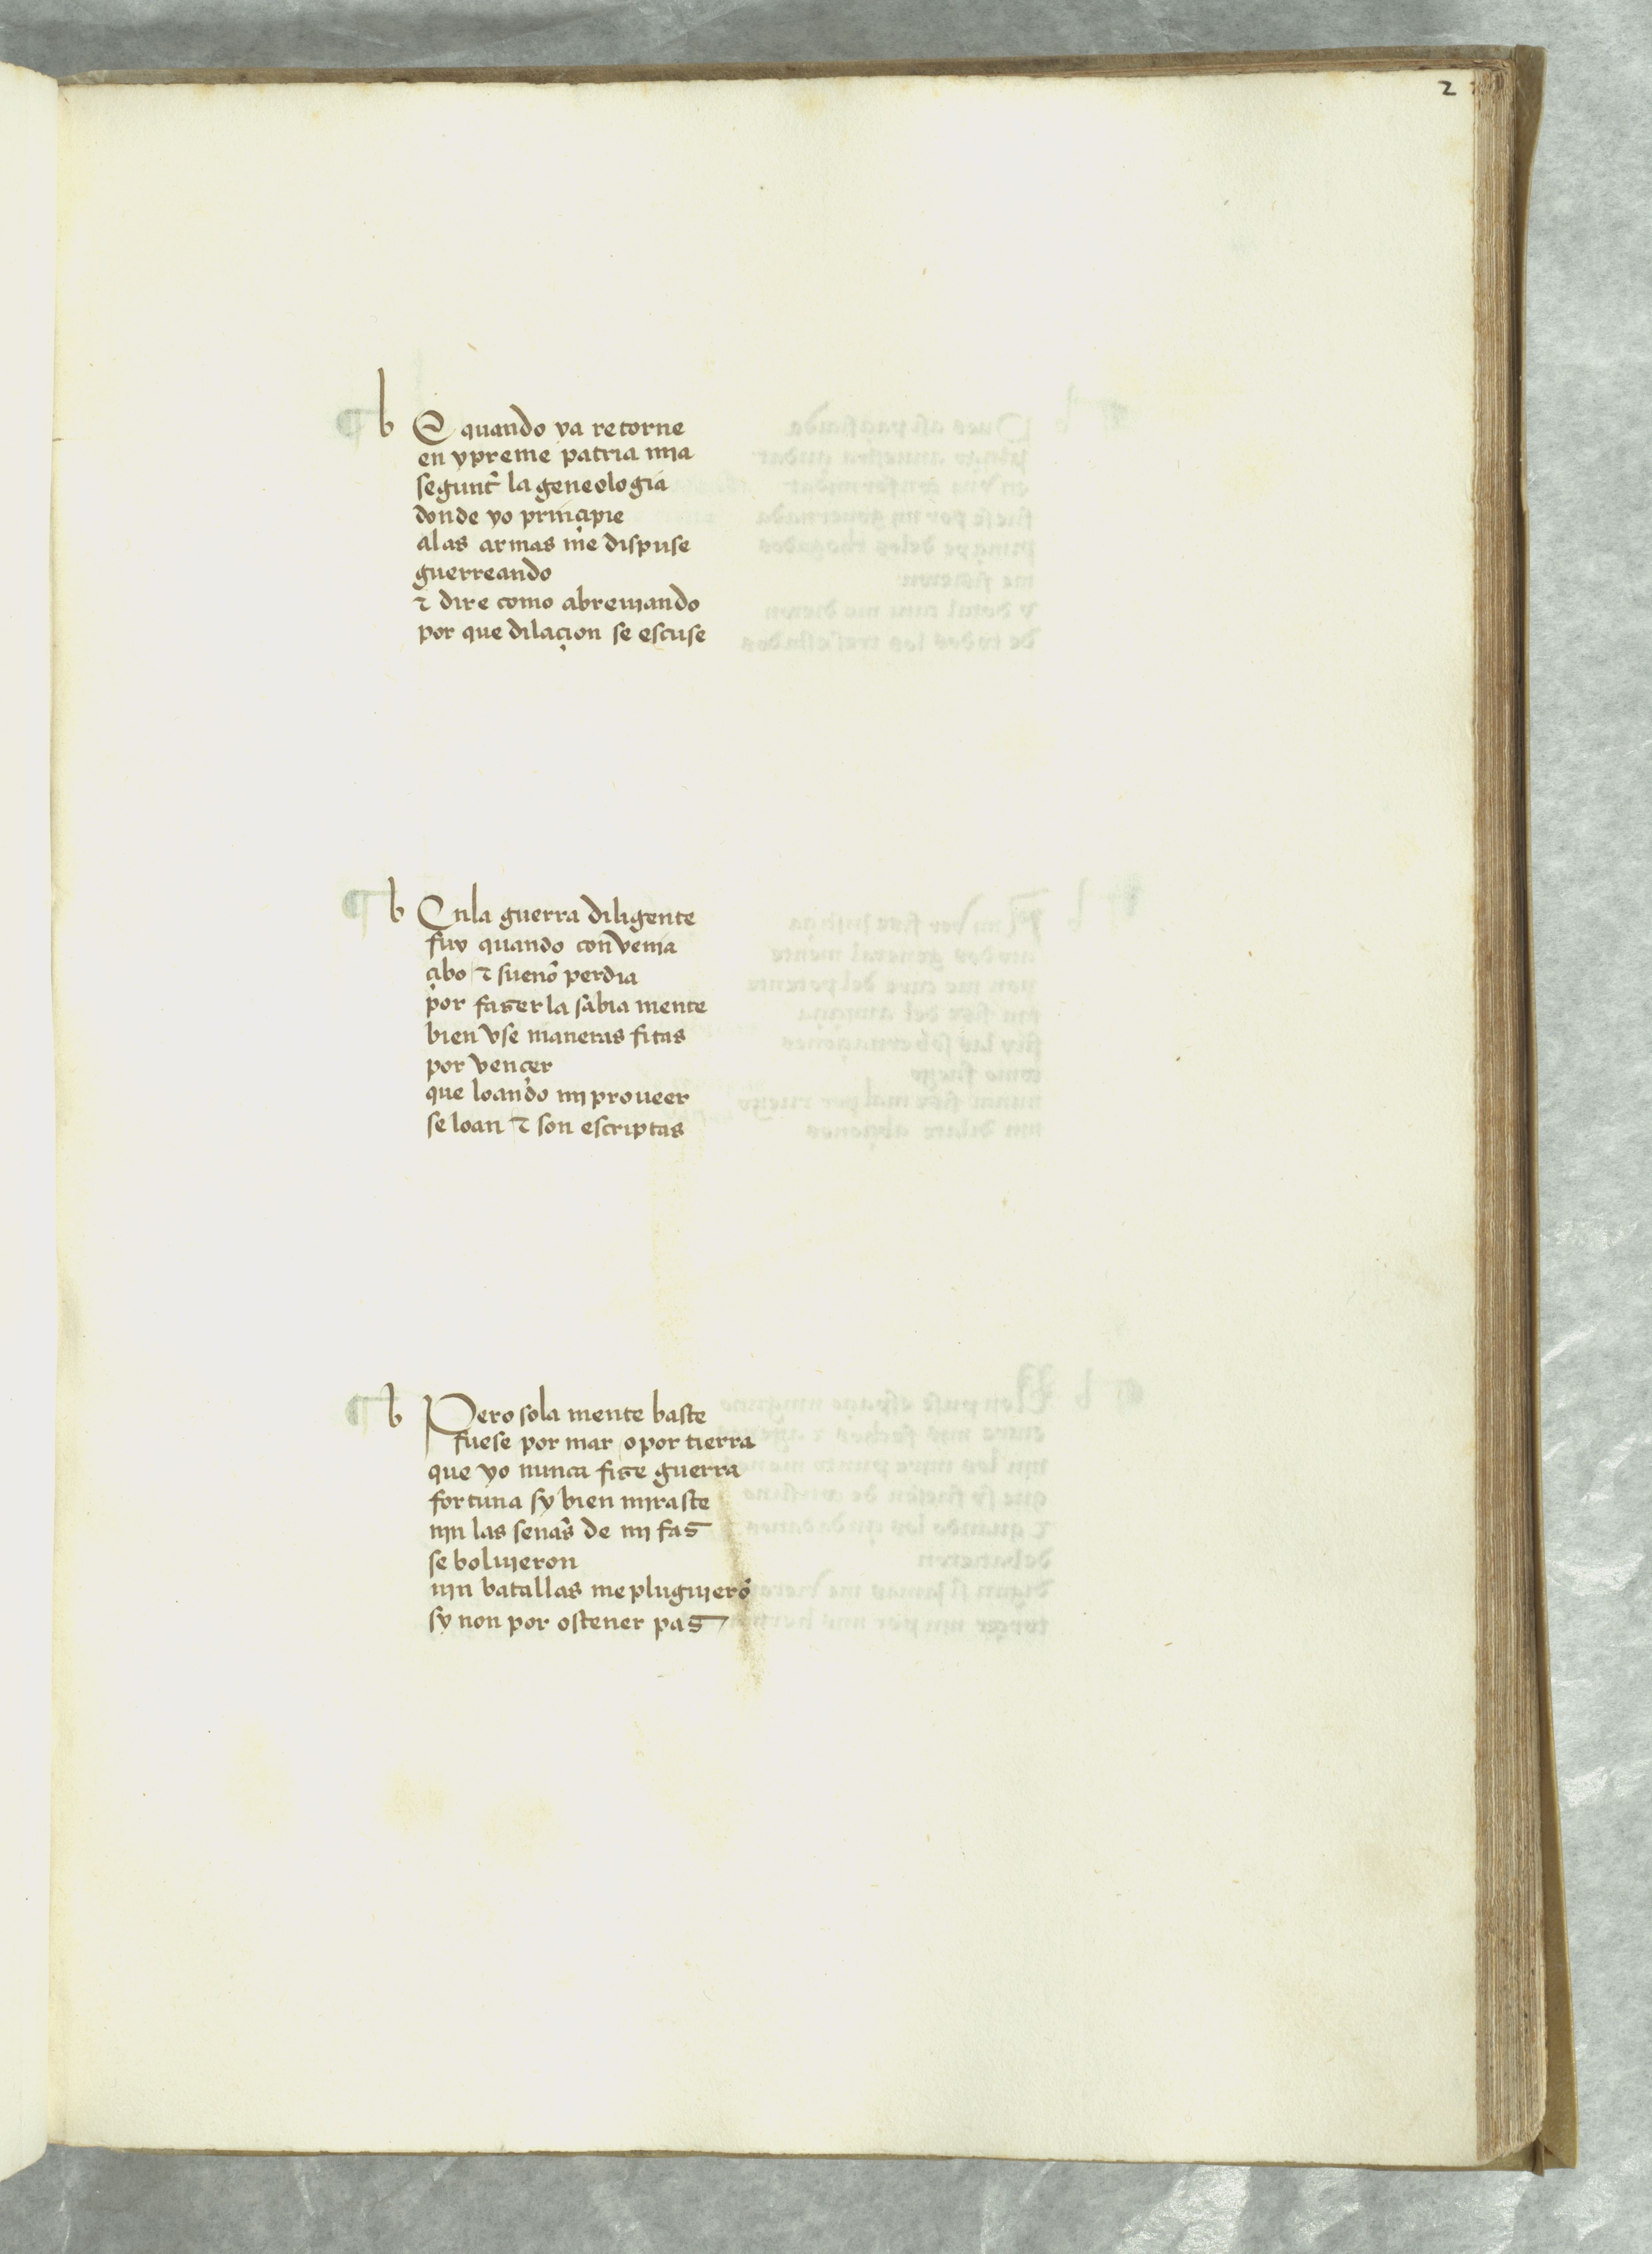 2
b E quando ya retorne
en ypreme patria mia
segunt la geneologia
donde yo prinçipie
alas armas me dispuse
guerreando
⁊ dire como abreuiando
por que dilaçion se escuse
b Enla guerra diligente
fuy quando convenia
çibo ⁊ sueno perdia
por fazer la sabia mente
bien vse maneras fitas
por vençer
que loando mi proueer
se loan ⁊ son escriptas
b Pero sola mente baste
fuese por mar o por tierra
que yo nunca fize guerra
fortuna sy bien miraste
nin las senas de mi faz
se boluieron
nin batallas me pluguierõ
sy non por ostener paz